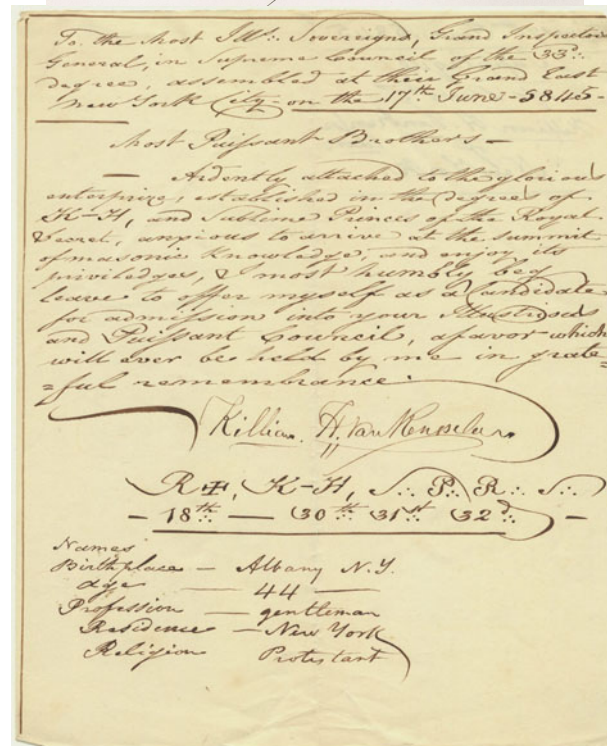 To, the Most Ill∴ Sovereigns, Grand Inspectors
General, in Supreme Council of the 33d∴
degree, assembled at their Grand East
New York City - on the 17th June - 5845 -
Most Puissant Brothers -
— Ardently attached to the glorious
enterprize, established in the degrees of
K-H, and Sublime Princes of the Royal
Secret, anxious to arrive at the summit
of masonic Knowledge and enjoy its
priviledges, & most humbly beg
leave to offer myself as a Candidate
for admission into your Illustrious
and Puissant Council, a favor which
will ever be held by me in grate=
=ful remembrance.
Killian. H. Van Rensselaer
R✠, K-H, S∴ P∴ R∴ S∴
- 18th∴ — 30th∴ 31st 32d∴ -
Names
Birthplace — Albany N.Y.
age — 44 —
Profession — gentleman
Residence — New York
Religion Protestant